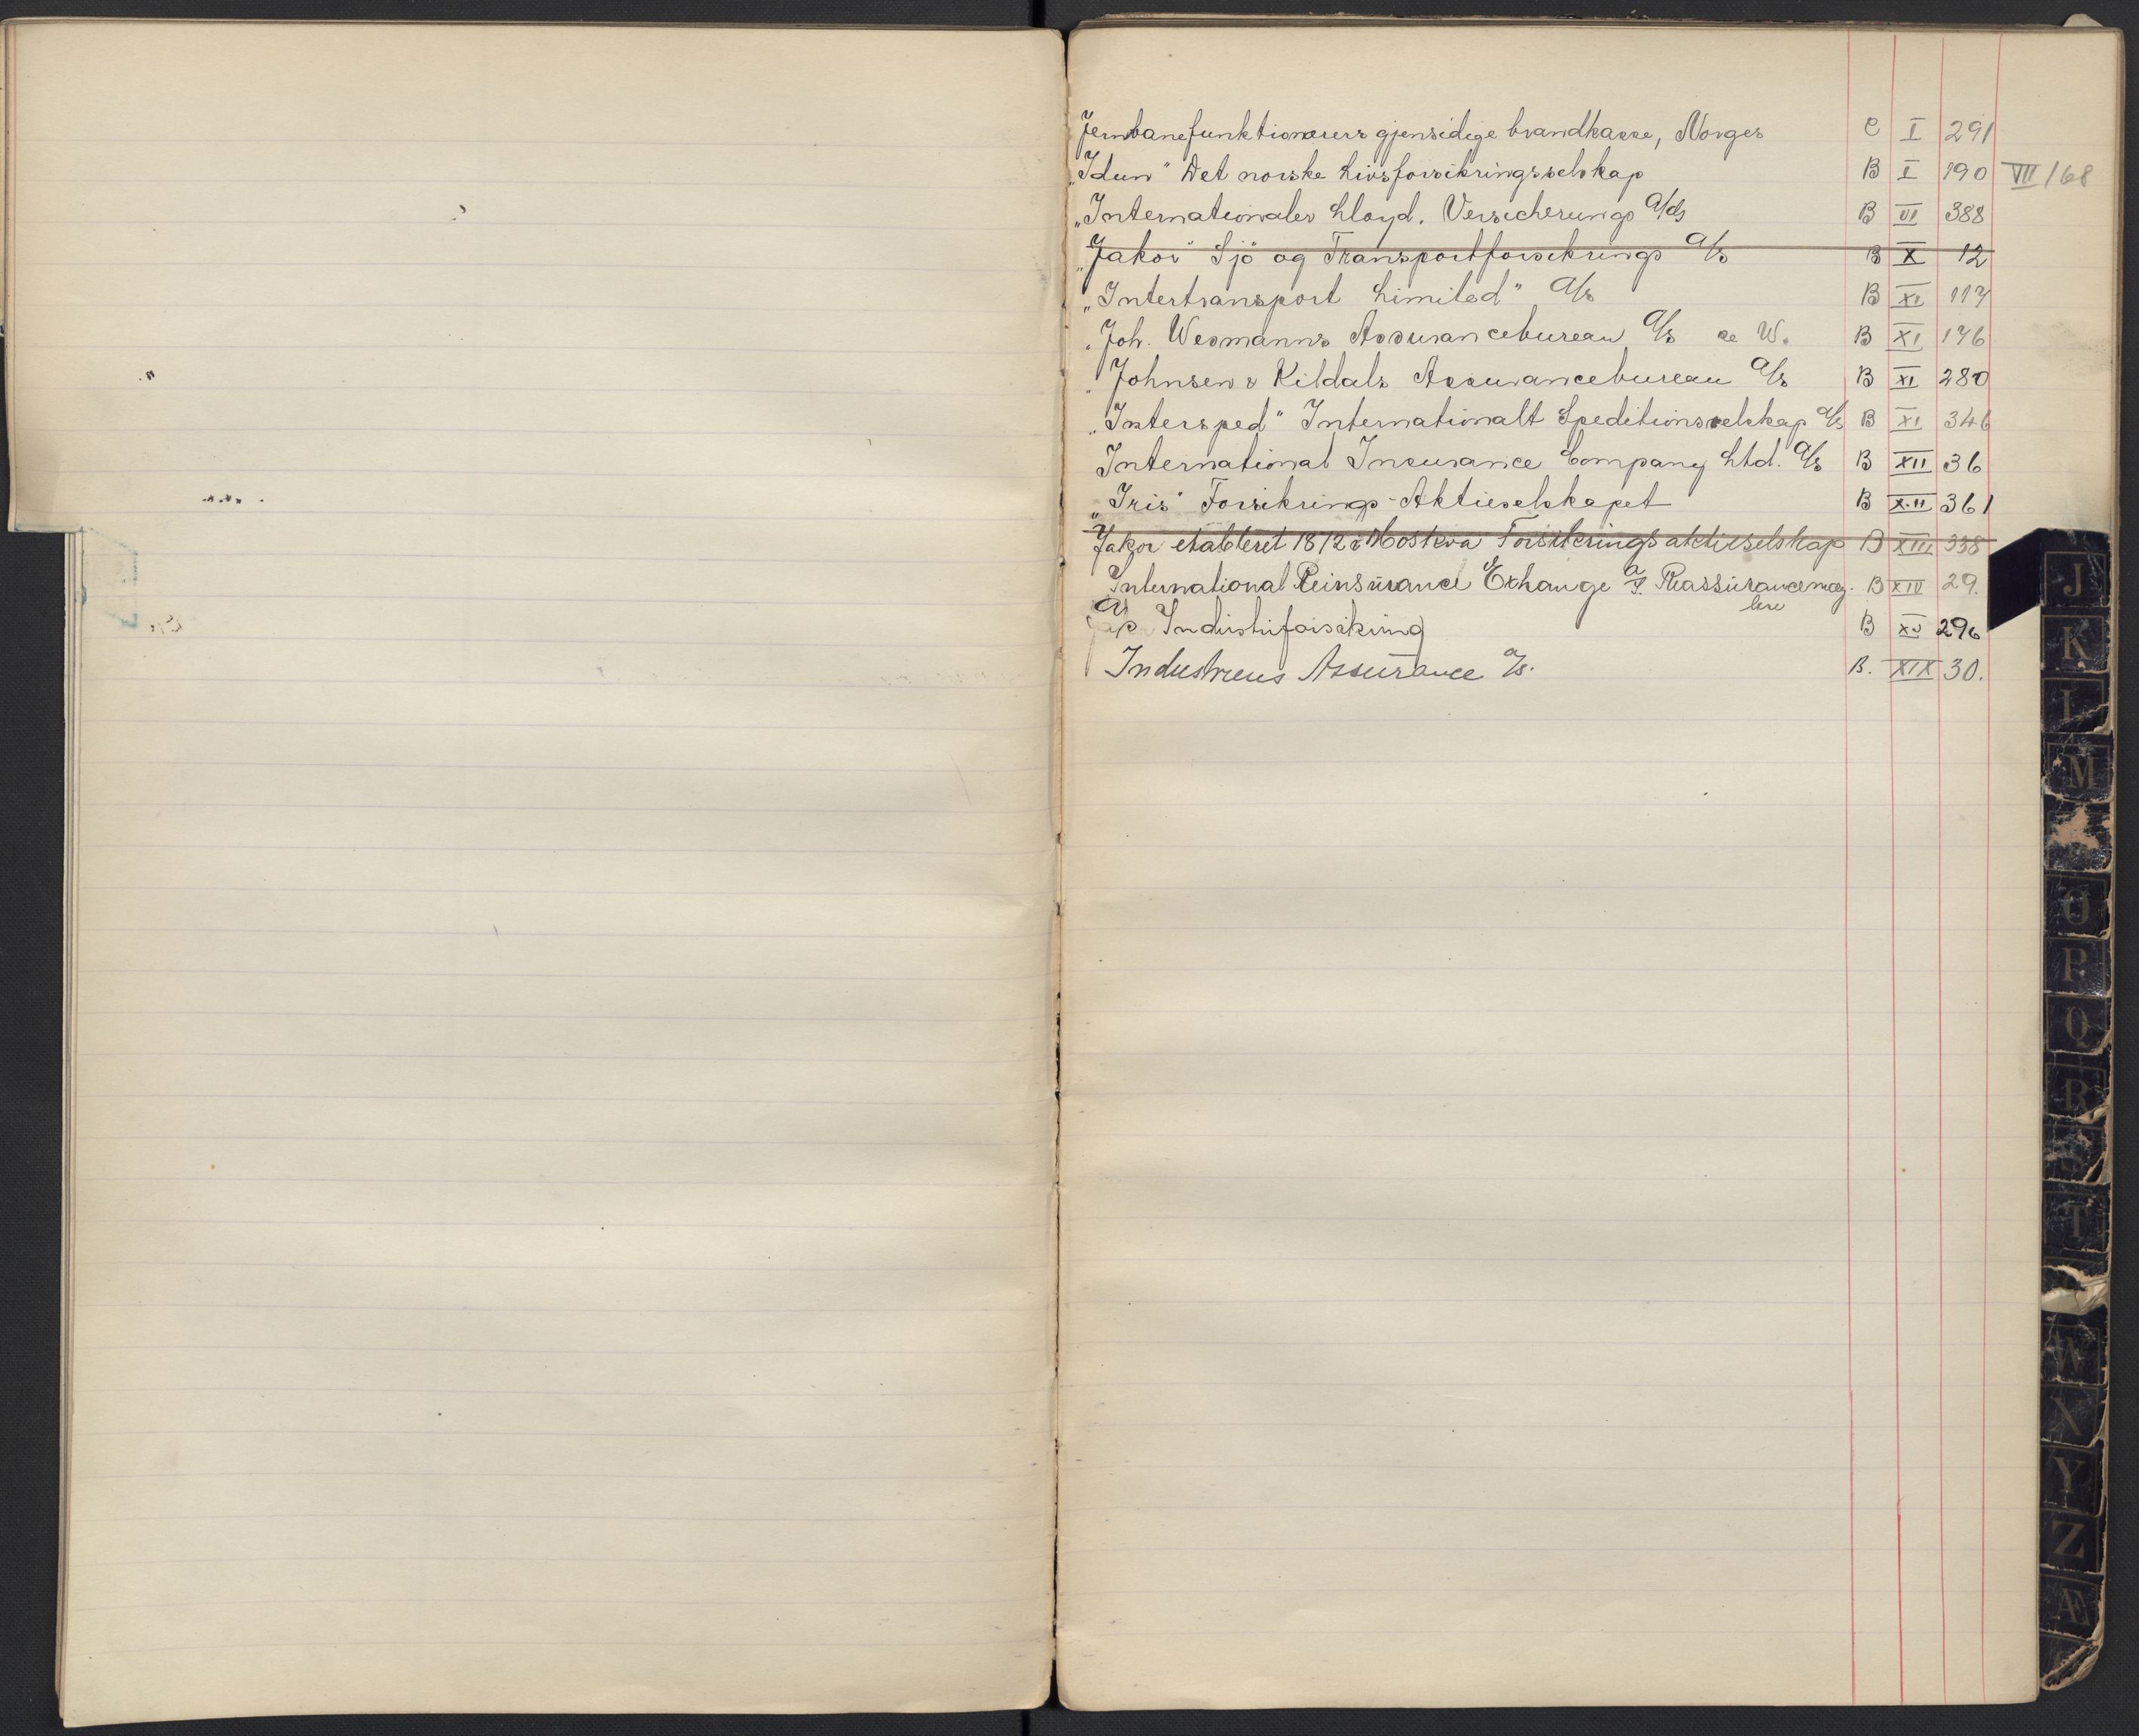 Jernbanefunktionærers gjensidige brandkasse, Norges C I 291
„Idun" Det norske Livsforsikringsselskap B I 190 VII/68
„Internationaler Lloyd. Versicherungs A/ds B VI 388
„Jakor" Sjö og Transportforsikrings A/s B X 12
„Intertransport Limited" A/s B XI 117
„Joh. Wesmanns Assurancebureau A/s se W. B XI 176
Johnsen & Kildals Assurancebureau A/s B XI 280
„Intersped" Internationalt Speditionsselskap A/s B XI 346
International Insurance Company Ltd. A/s B XII 36
„Iris" Forsikrings-Aktieselskapet B XII 361
Jakor etableret 1872 i Moskva Forsikringsaktieselskap B XIII 338
International Reinsurance Exchange Reassurancemæg- B XIV 29.
lere
A/s Industriforsikring B XV 296
Industriens Assurance A/s. B. XIX 30.
J
K
L
M
O
P
Q
R
T
W
X
Y
Z
Æ